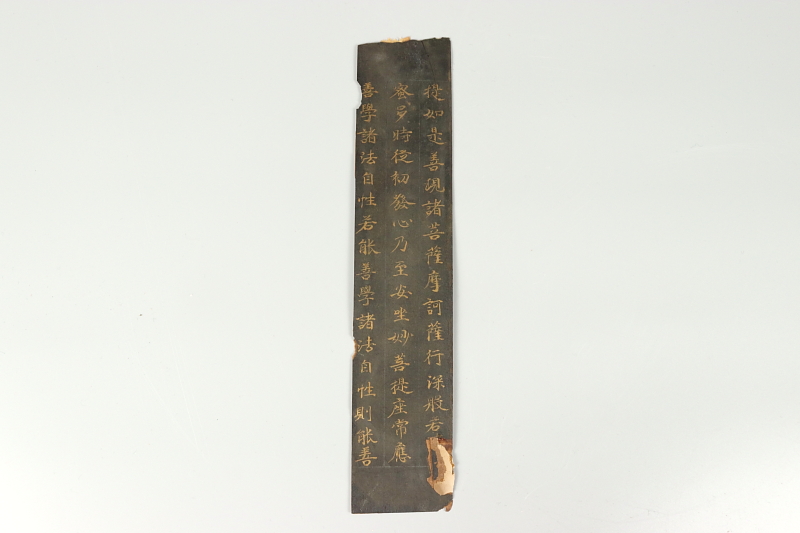 提如是善現諸菩薩摩訶薩行深般若
蜜多時從初發心乃至安坐妙菩提座常應
善學諸法自性若能善學諸法自性則能善